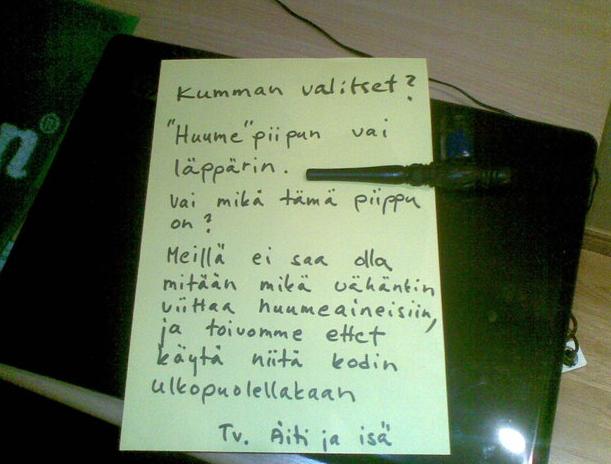 Kumman valitset?
"Huume"piipun vai
läppärin.
Vai mikä tämä piippu
on?
Meillä ei saa olla
mitään mikä vähänkin
viittaa huumeaineisiin,
ja toivomme ettet
käytä niitä kodin
ulkopuolellakaan
Tv. Äiti ja isä
n®